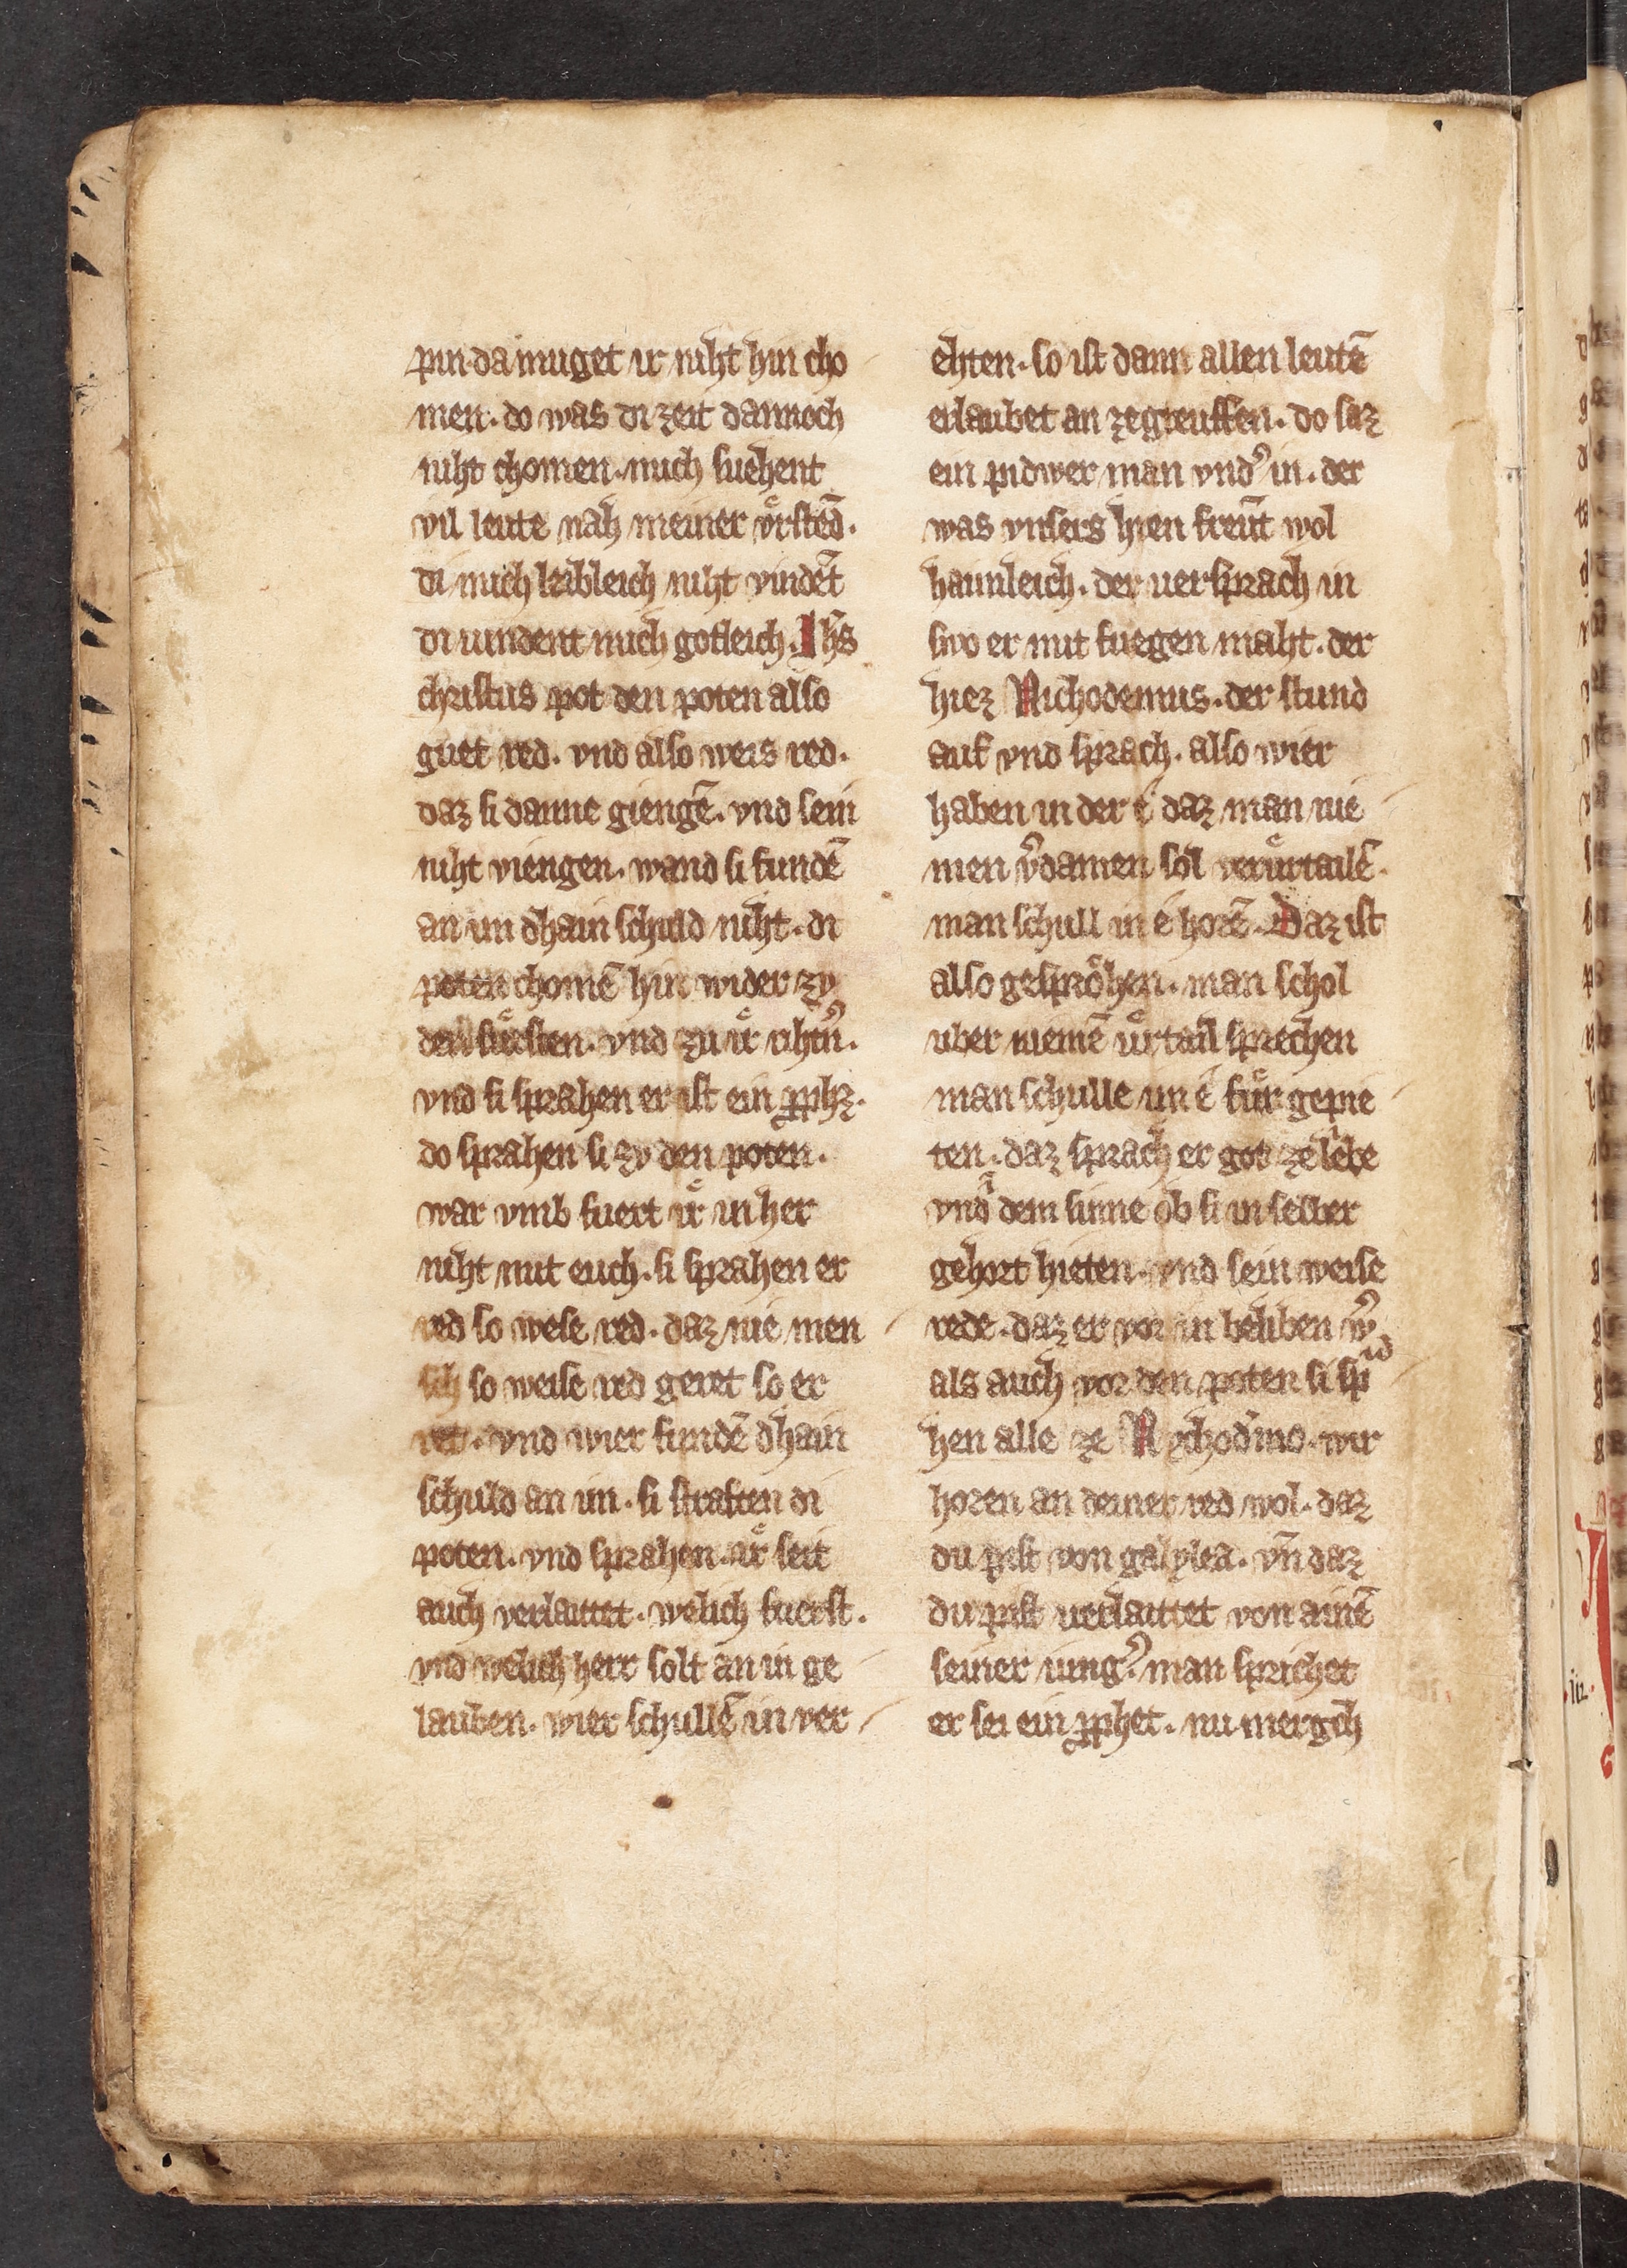 pin · da muget ir niht hin cho
men · do was di zeit dannoch
niht chomen · mich suehent
vil leute nah meiner vͤrstēd ·
di mich leibleich niht vindēt
di uindent mich gotleich · Ihs̄
christus pot den poten also
guet red · vnd also weis red ·
daz si danne giengē · vnd sein
niht viengen · wand si fundē
an im dhain schuld niht · di
poten chomē hin wider zv
den fuͤrsten · vnd zu ir rihtn̄ ·
vnd si sprahen er ist ein ꝓphz ·
do sprahen si zv den poten ·
war vmb fuert irͤ in her
niht mit euch · si sprahen er
red so wese red · daz nie men
sch so weise red geret so er
ret · vnd wier fundē dhain
schuld an im · si straften di
poten · vnd sprahen · irͤ seit
auch verlaittet · welich fuerst ·
vnd welich herr solt an in ge
lauben · wier schullē in ver
ehten · so ist dann allen leutē
erlaubet an zegreuffen · do saz
ein pidwer man vnd᾽ in · der
was vnsers hren freūt wol
haimleich · der uersprach in
swo er mit fuegen maht · der
hiez Nichodemus · der stund
auf vnd sprach · also wier
haben in der é daz man nie
men v᾽damen sol veruͤrtailē ·
man schull in é horē · Daz ist
also gesprohen · man schol
uber niemē uͤrtail sprechen
man schulle im é fuͤr gepie
ten · daz sprach er got ze lebe
vnd dem sinne ob si in selber
gehort hieten · vnd sein weise
rede · daz er vor in beliben w᾽
als auch vor den poten si sp
hen alle ze Nychodmo · wir
horen an deiner red wol · daz
du pist von galylea · vn̄ daz
du pist uerlaittet von ainē
seiner iung᾽ · man sprichet
er sei ein ꝓphet · nu mergch